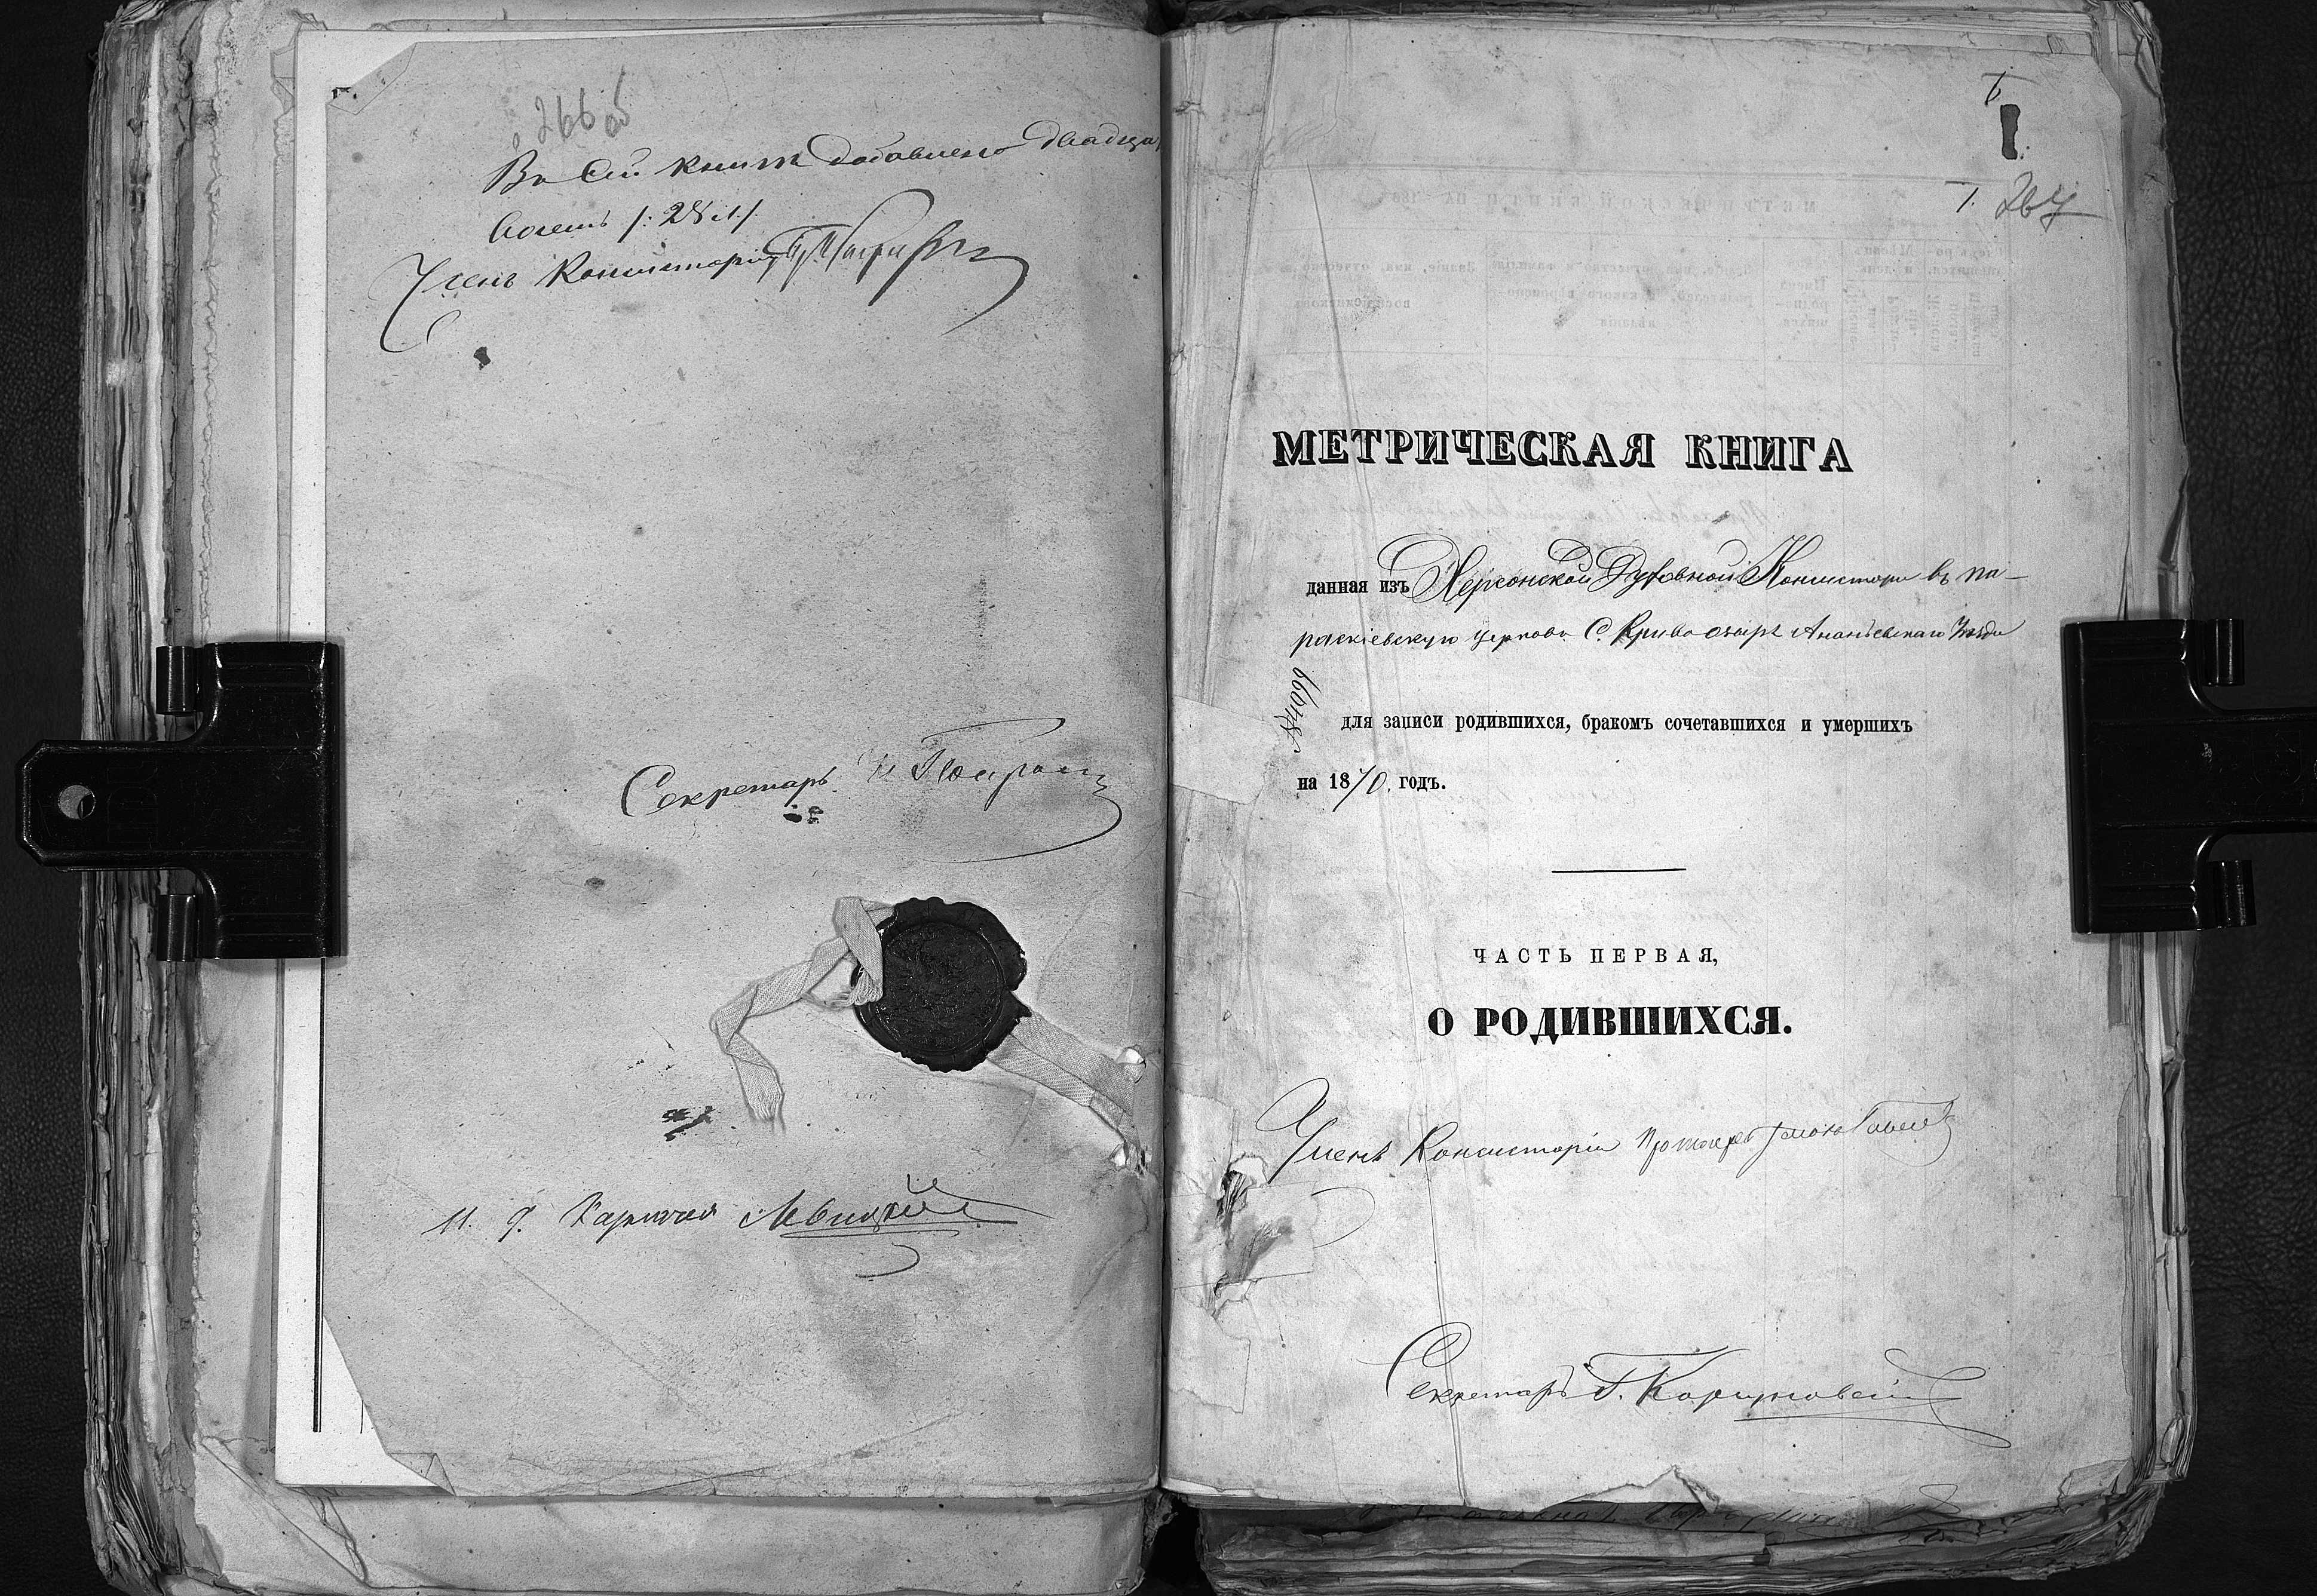 266 об
Въ сей книгѣ добавлено двадцать
восемь /: 28 л :/
Членъ Консисторіи
Секретарь
И. д. Казначея Левицкій
1
267
МЕТРИЧЕСКАЯ КНИГА
данная изъ Херсонской Духовной Консисторіи въ Па-
раскіевскую церковь с. Криво озера Ананьевскаго Уѣзда
№ 4099
для записи родившихся, бракомъ сочетавшихся и умершихъ
на 1870. годъ.
ЧАСТЬ ПЕРВАЯ,
О РОДИВШИХСЯ.
Членъ Консисторіи Протоіерей
Секретарь Г.